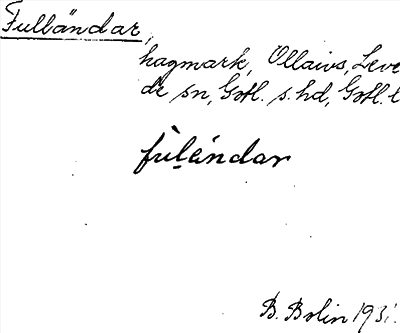 Fulländar,
hagmark, Ollaivs, Leve
de sn, Gotl. s. hd, Gotl. l
fùlándar
B. Bolin 1931.